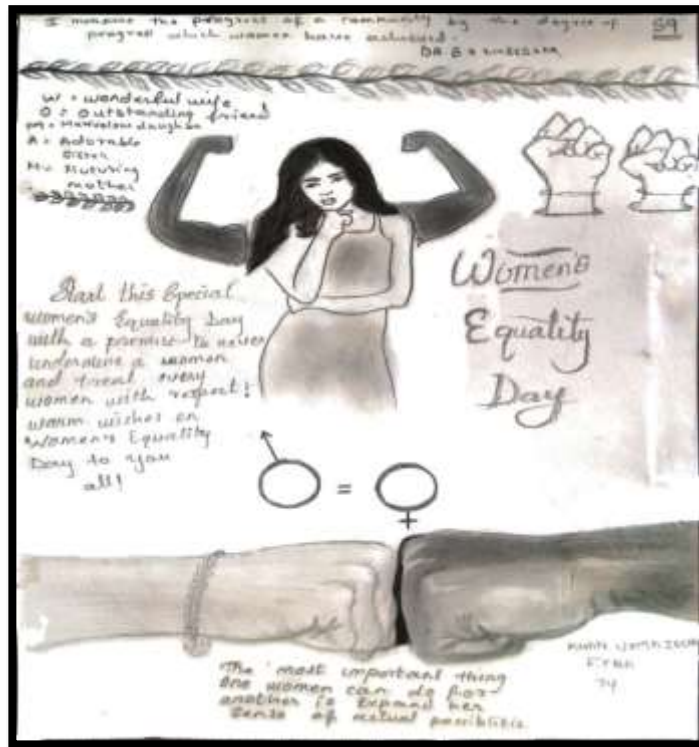 I measure the progress of a community by the degree of
progress which women have achieved.
DR B
59
W = wonderful wife
O = Outstanding friend
= Marvelous daughter
A = Adorable
Sister
N = Nuturing
mother
Start this Special
women's Equality Day
with a promise to never
undermine a women
and treat every
women with respect!
warm wishes on
Women's Equality
Day to you
all!
Women's
Equality
Day
=
The most important thing
One women can do for
another is expand her
Sense of actual possibilities
KHAN